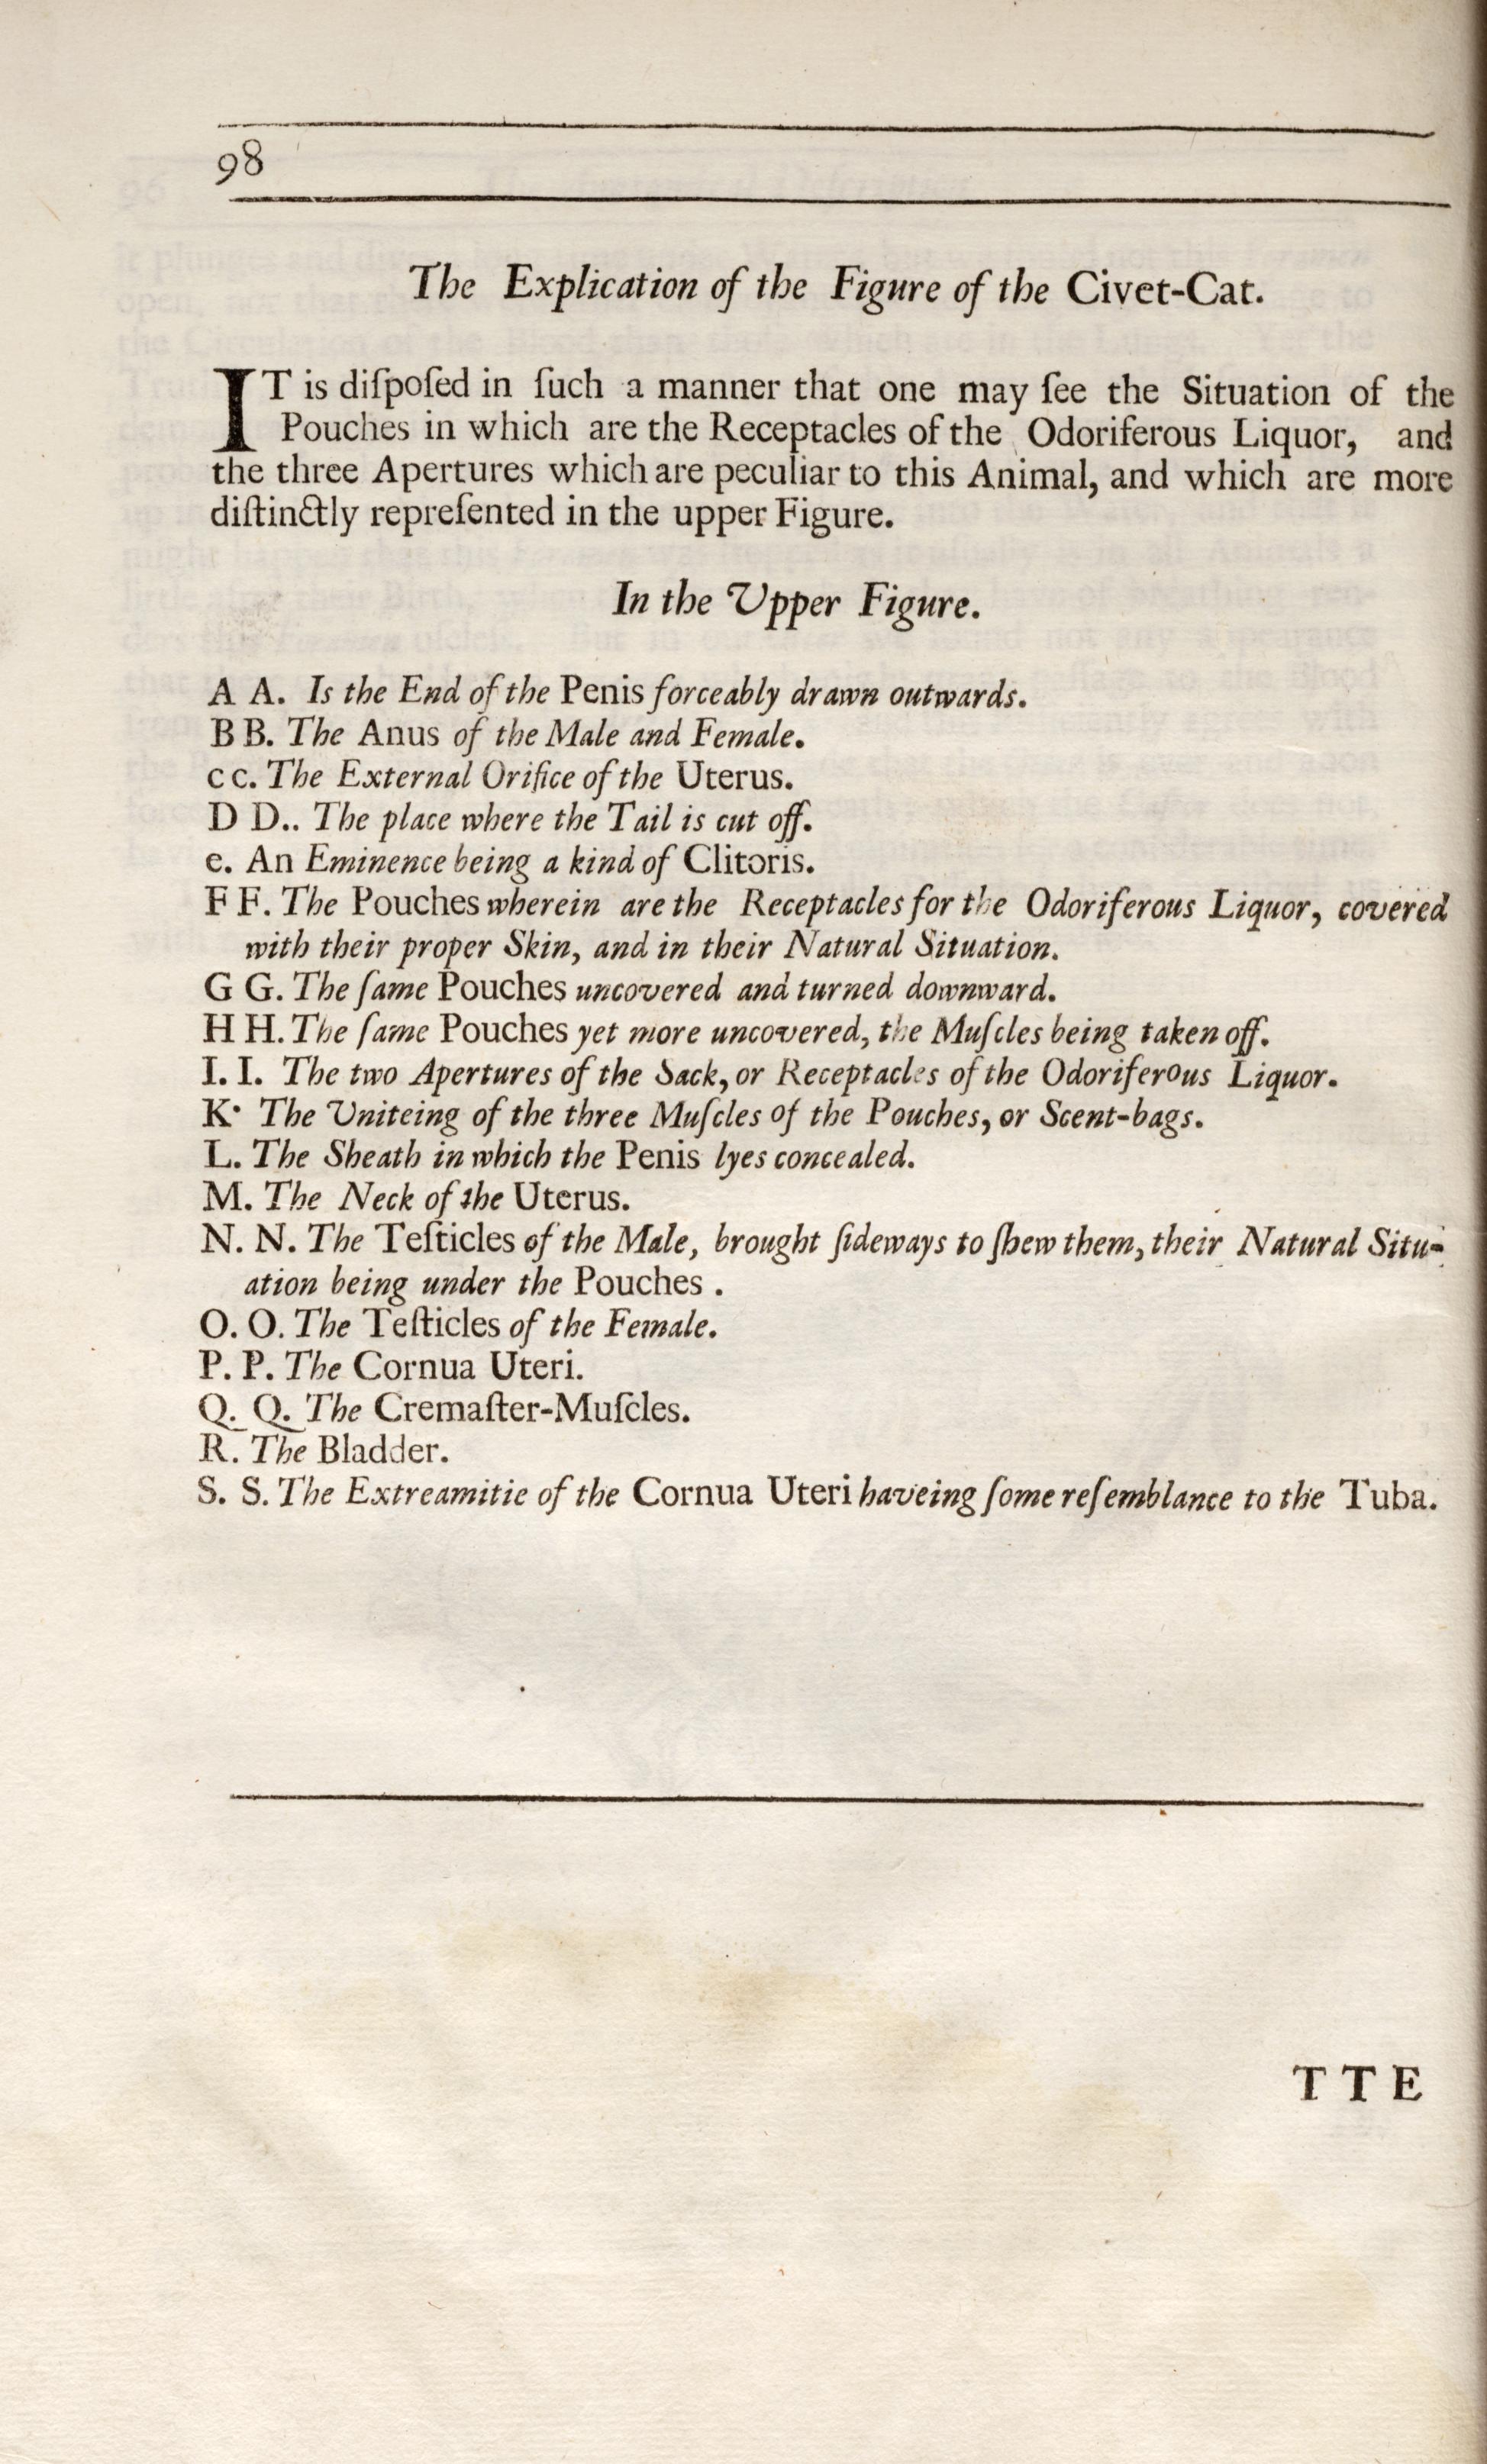 98
The Explication of the Figure of the Civet-Cat.
IT is diſpoſed in ſuch a manner that one may ſee the Situation of the
Pouches in which are the Receptacles of the Odoriferous Liquor, and
the three Apertures which are peculiar to this Animal, and which are more
diſtinctly repreſented in the upper Figure.
In the Upper Figure.
A A. Is the End of the Penis forceably drawn outwards.
B B. The Anus of the Male and Female.
c c. The External Orifice of the Uterus.
D D.. The place where the Tail is cut off.
e. An Eminence being a kind of Clitoris.
F F. The Pouches wherein are the Receptacles for the Odoriferous Liquor, covered
with their proper Skin, and in their Natural Situation.
G G. The ſame Pouches uncovered and turned downward.
H H. The ſame Pouches yet more uncovered, the Muſcles being taken off.
I. I. The two Apertures of the Sack, or Receptacles of the Odoriferous Liquor.
K· The Uniteing of the three Muſcles of the Pouches, or Scent-bags.
L. The Sheath in which the Penis lyes concealed.
M. The Neck of the Uterus.
N. N. The Teſticles of the Male, brought ſideways to ſhew them, their Natural Situ-
ation being under the Pouches .
O. O. The Teſticles of the Female.
P. P. The Cornua Uteri.
Q. Q. The Cremaſter-Muſcles.
R. The Bladder.
S. S. The Extreamitie of the Cornua Uteri haveing ſome reſemblance to the Tuba.
T T E